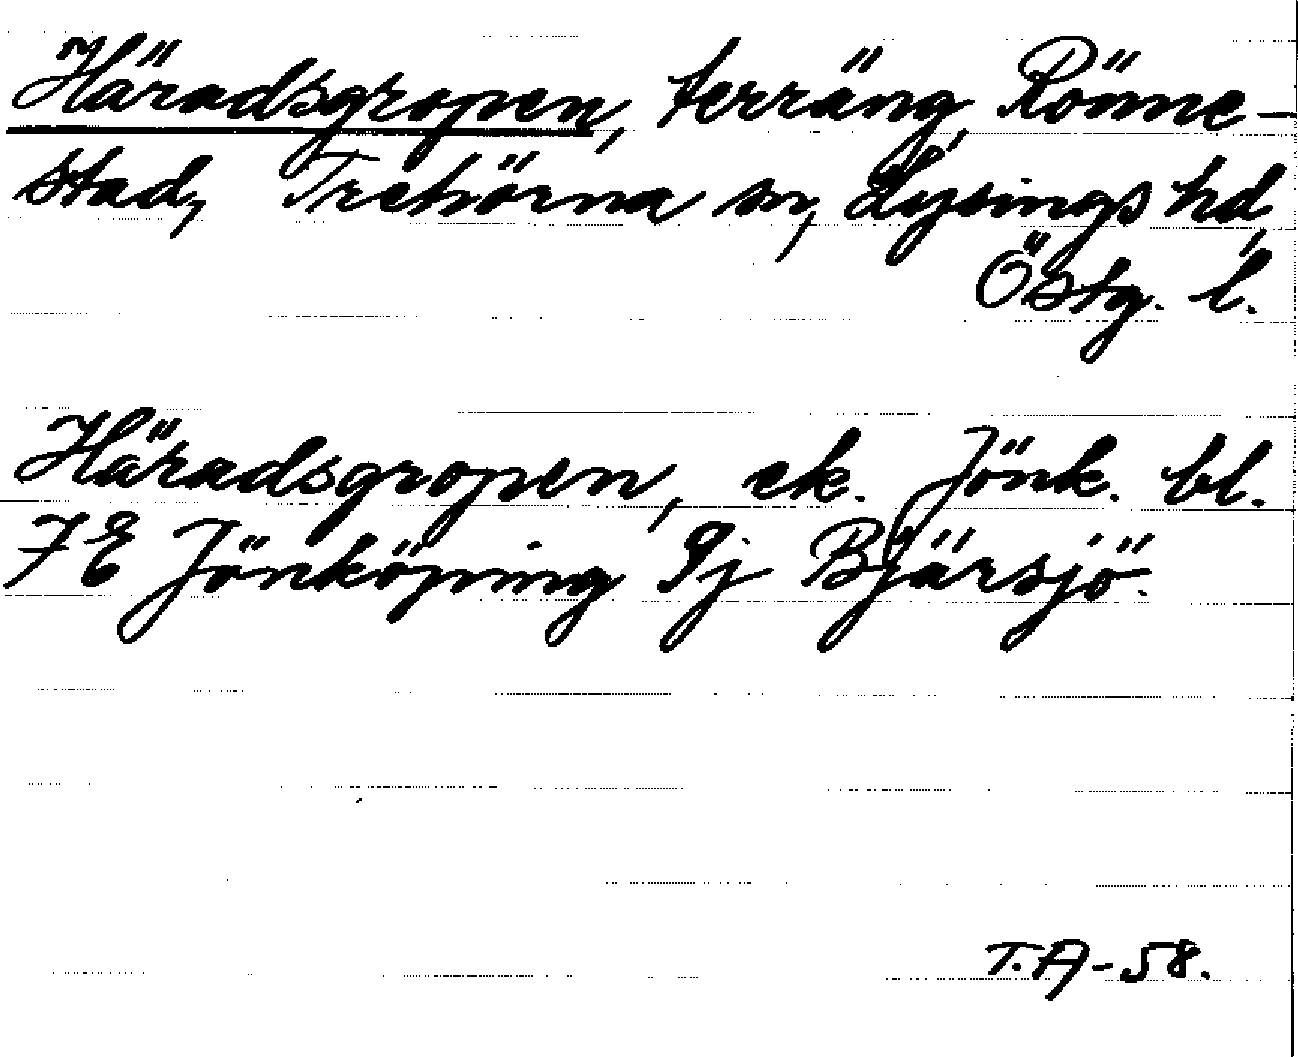 Häradsgropen, terräng, Rönne-
stad, Trehörna sn, Lysings hd,
Östg. l.
Häradsgropen, ek. Jönk. bl.
7E Jönköping 9j Bjärsjö.
T.A-58.